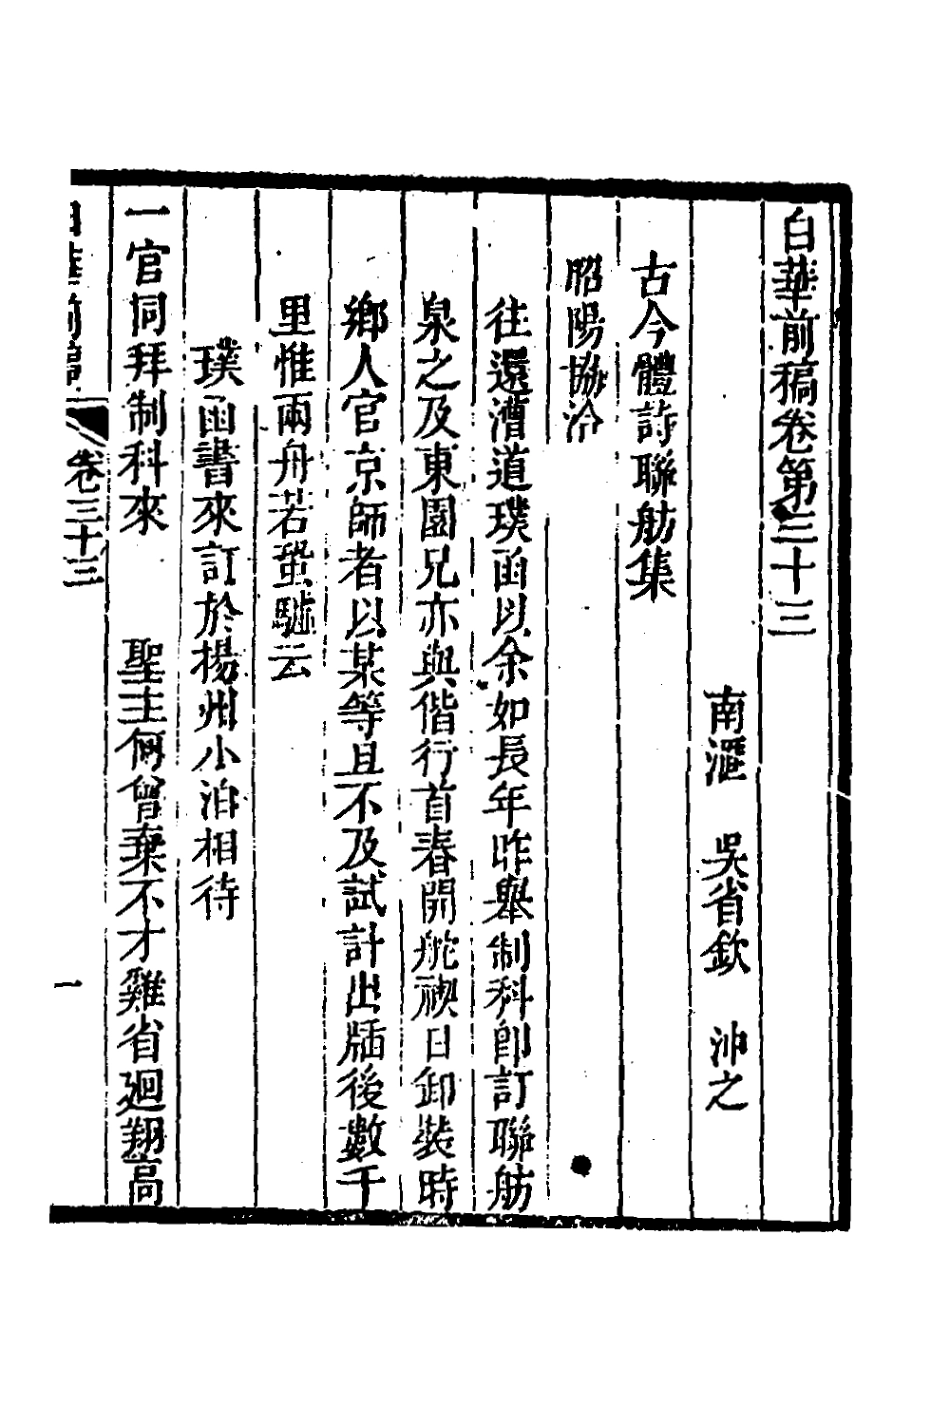 白華前稿卷第三十三
南滙　吳省欽　沖之
古今體詩聯舫集
昭陽協洽
往還漕道璞函以余如長年昨舉制科卽訂聯舫
泉之及東園兄亦與偕行首春開舵禊日卸裝時
鄉人官京師者以某等且不及試計出牐後數千
里惟兩舟若蛩駏云
璞函書來訂於揚州小泊相待
一官同拜制科來　聖主何曾棄不才雞省廻翔高
白華前稿　卷三十三　一